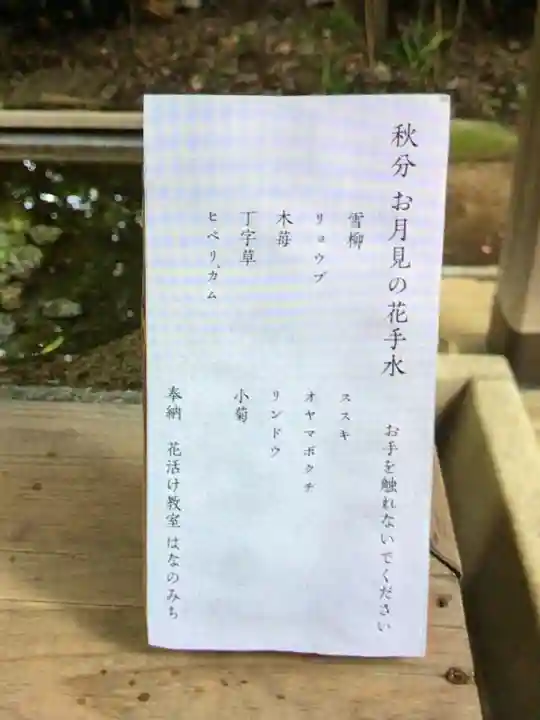 秋分 お月見の花手水
お手を触れないでください
雪柳
リョウブ
木苺
丁字草
ヒペリカム
ススキ
オヤマボクチ
リンドウ
小菊
奉納 花活け教室 はなのみち